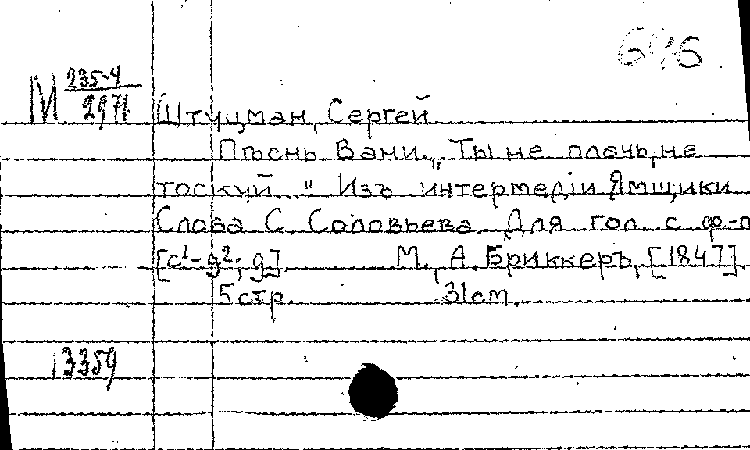 М 235-4
2971
Штуцман, Сергей
Пѣснь Вани. „Ты не плачь, не
тоскуй..." Изъ интермедіи Ямщики
Слова С. Соловьева. Для гол. с ф-п
[c¹-g²; g]. М., А. Бриккеръ, [1847].
5 стр. 31 см.
13359